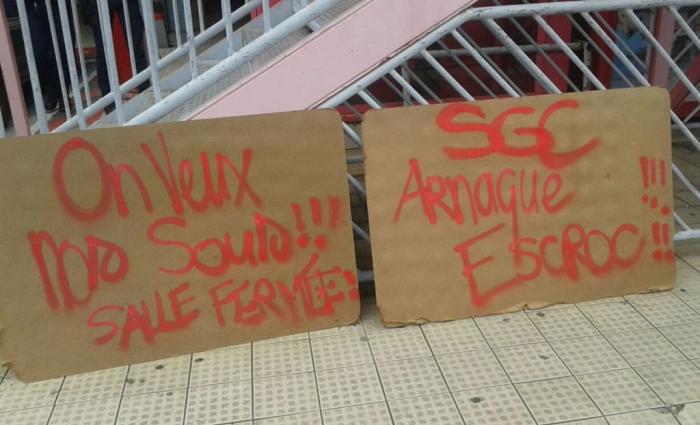 On Veux
nos Sous!!!
SALLE FERMÉE!!
SGC
ARNAQUE !!!
ESCROC!!